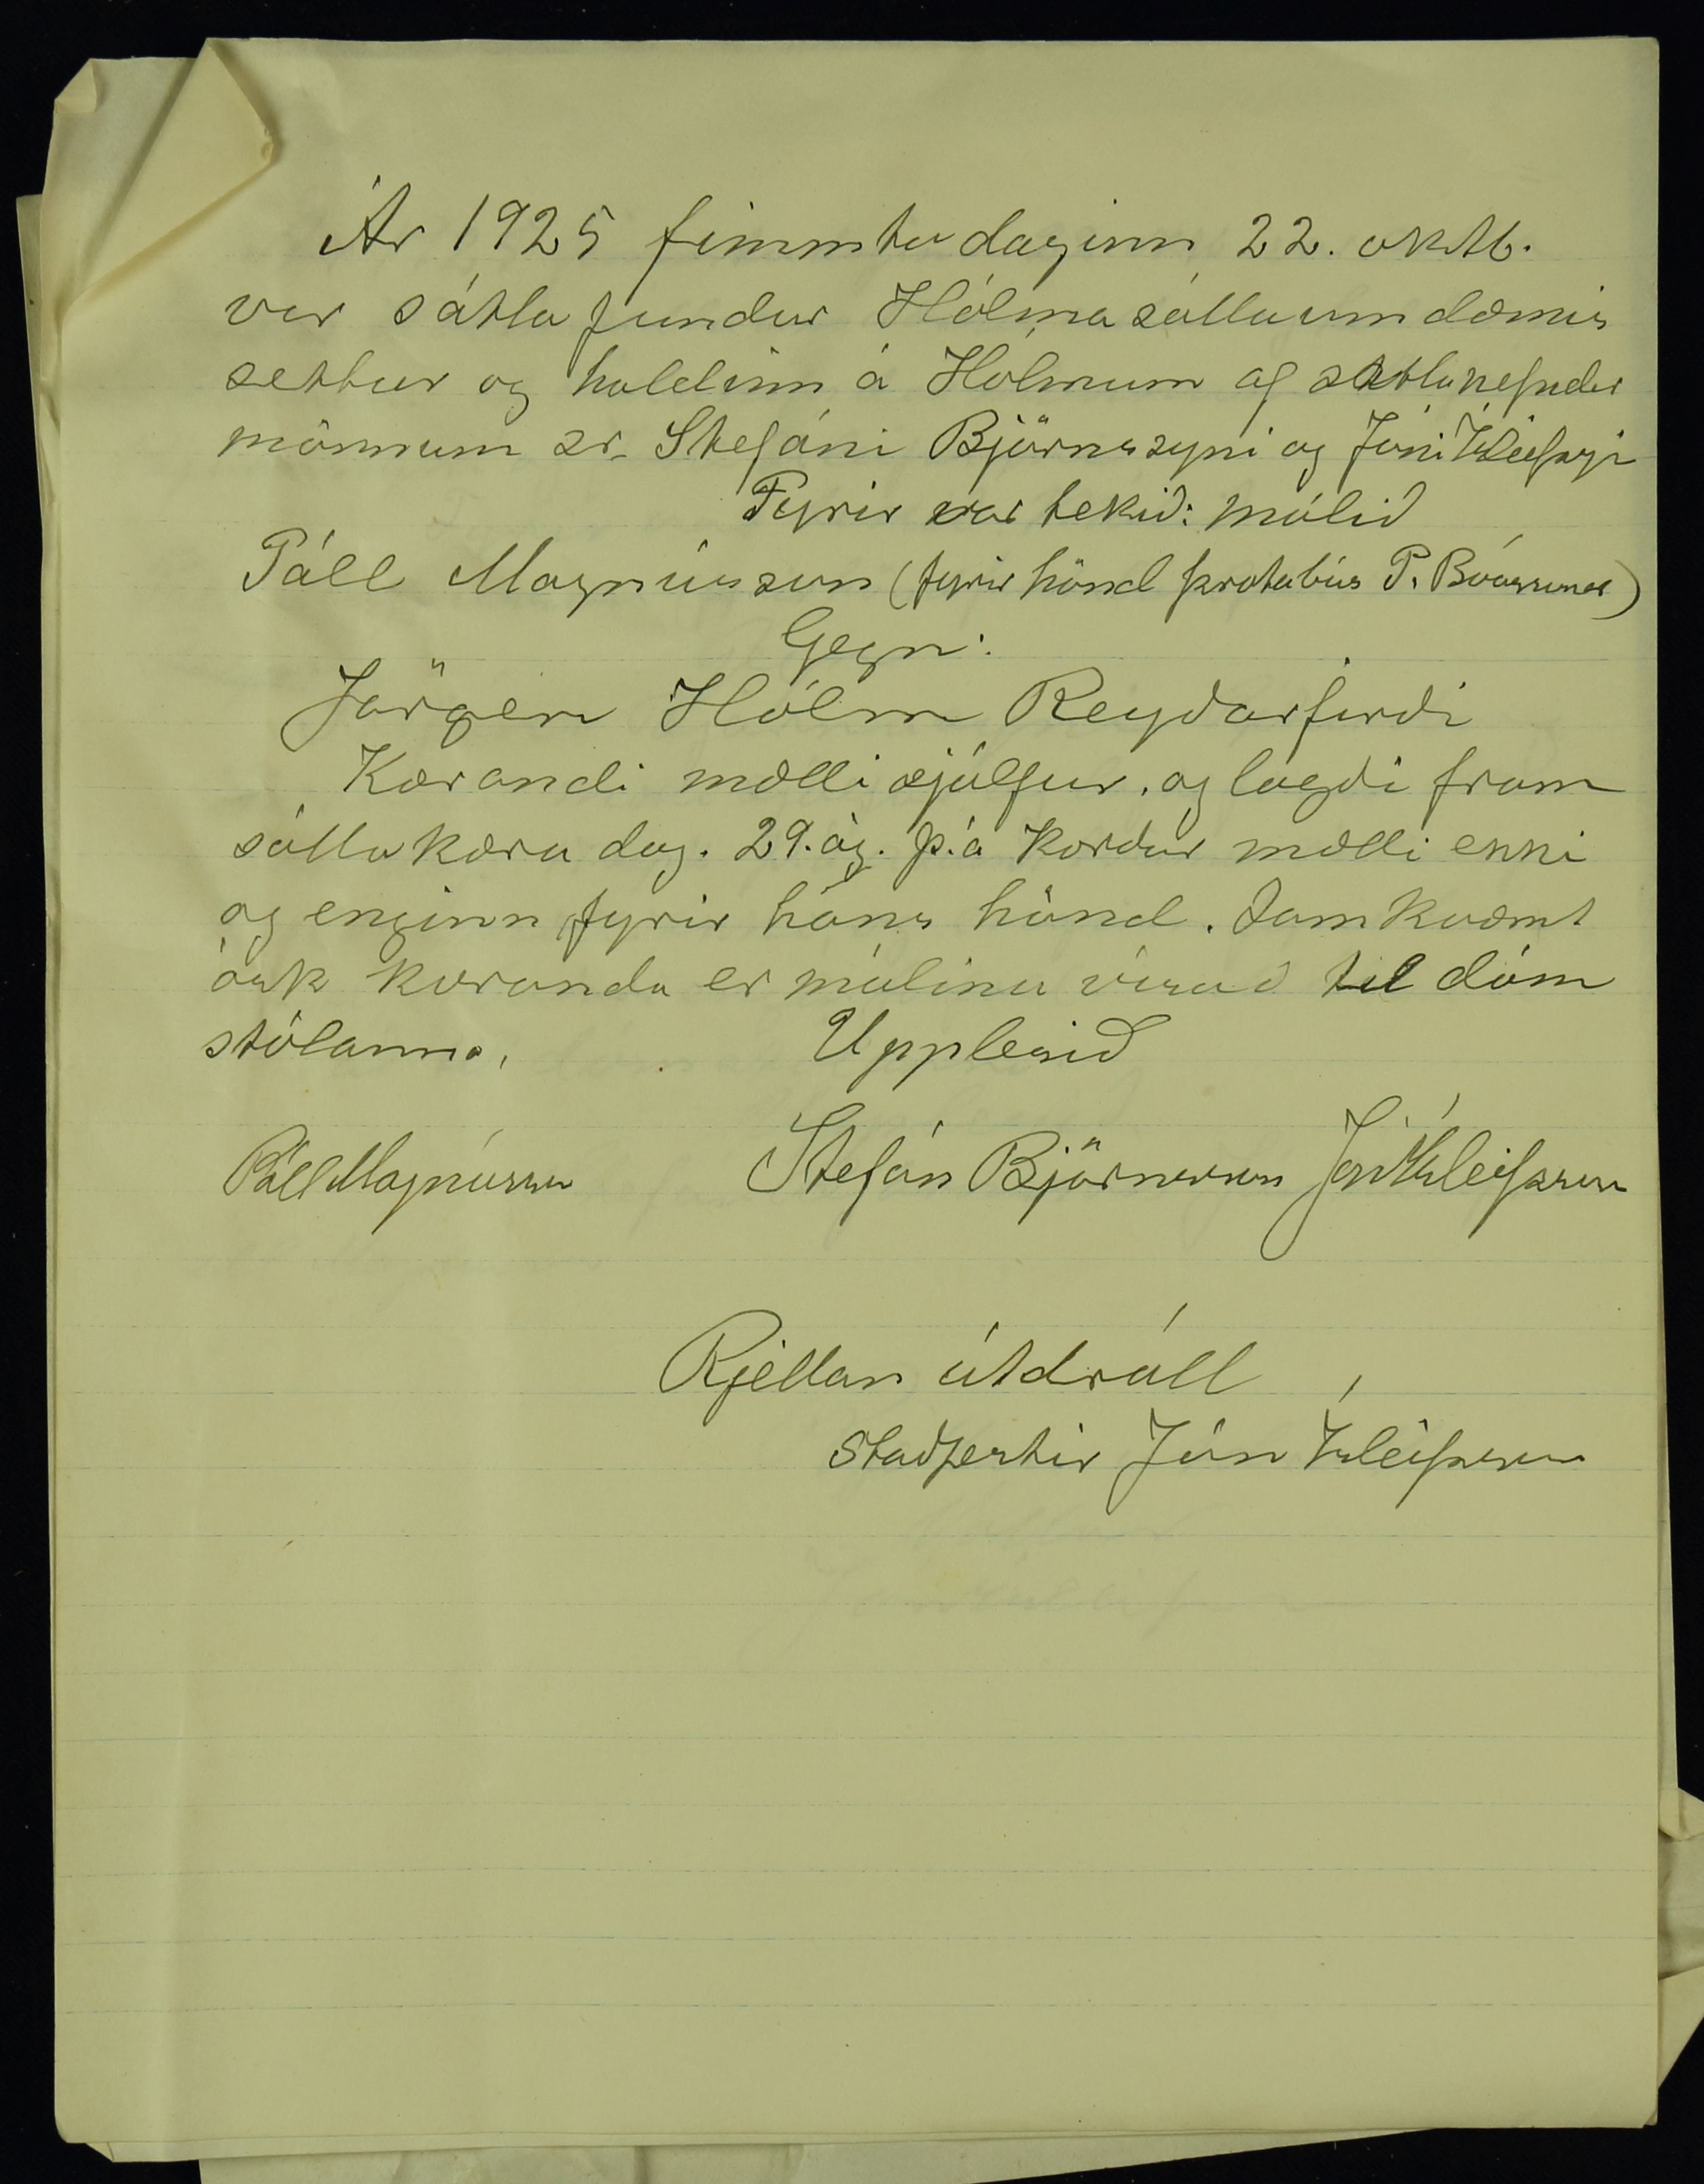 Ár 1925 fimmtudaginn 22. októb.
var sáttafundur Hólmasáttaumdæmis
settur og haldinn á Hólmum af sáttanefndar
mönnum sr. Stefáni Björnssyni og Jóni Ísleifssyni
Fyrir var tekið: málið
Páll Magnússon (fyrir hönd þrotabús R. Bóassonar)
Gegn:
Jörgen Hólm Reyðarfirði
Kærandi mætti sjálfur, og lagði fram
sáttakæru dag. 29. ág. þ.á Kærður mætti ekki
og enginn fyrir hans hönd. Samkvæmt
ósk kæranda er málinu vísað til dóm
stólanna. Upplesið
Páll Magnússon Stefán Björnsson Jón Ísleifsson
Rjettan útdrátt
staðfestir Jón Ísleifsson